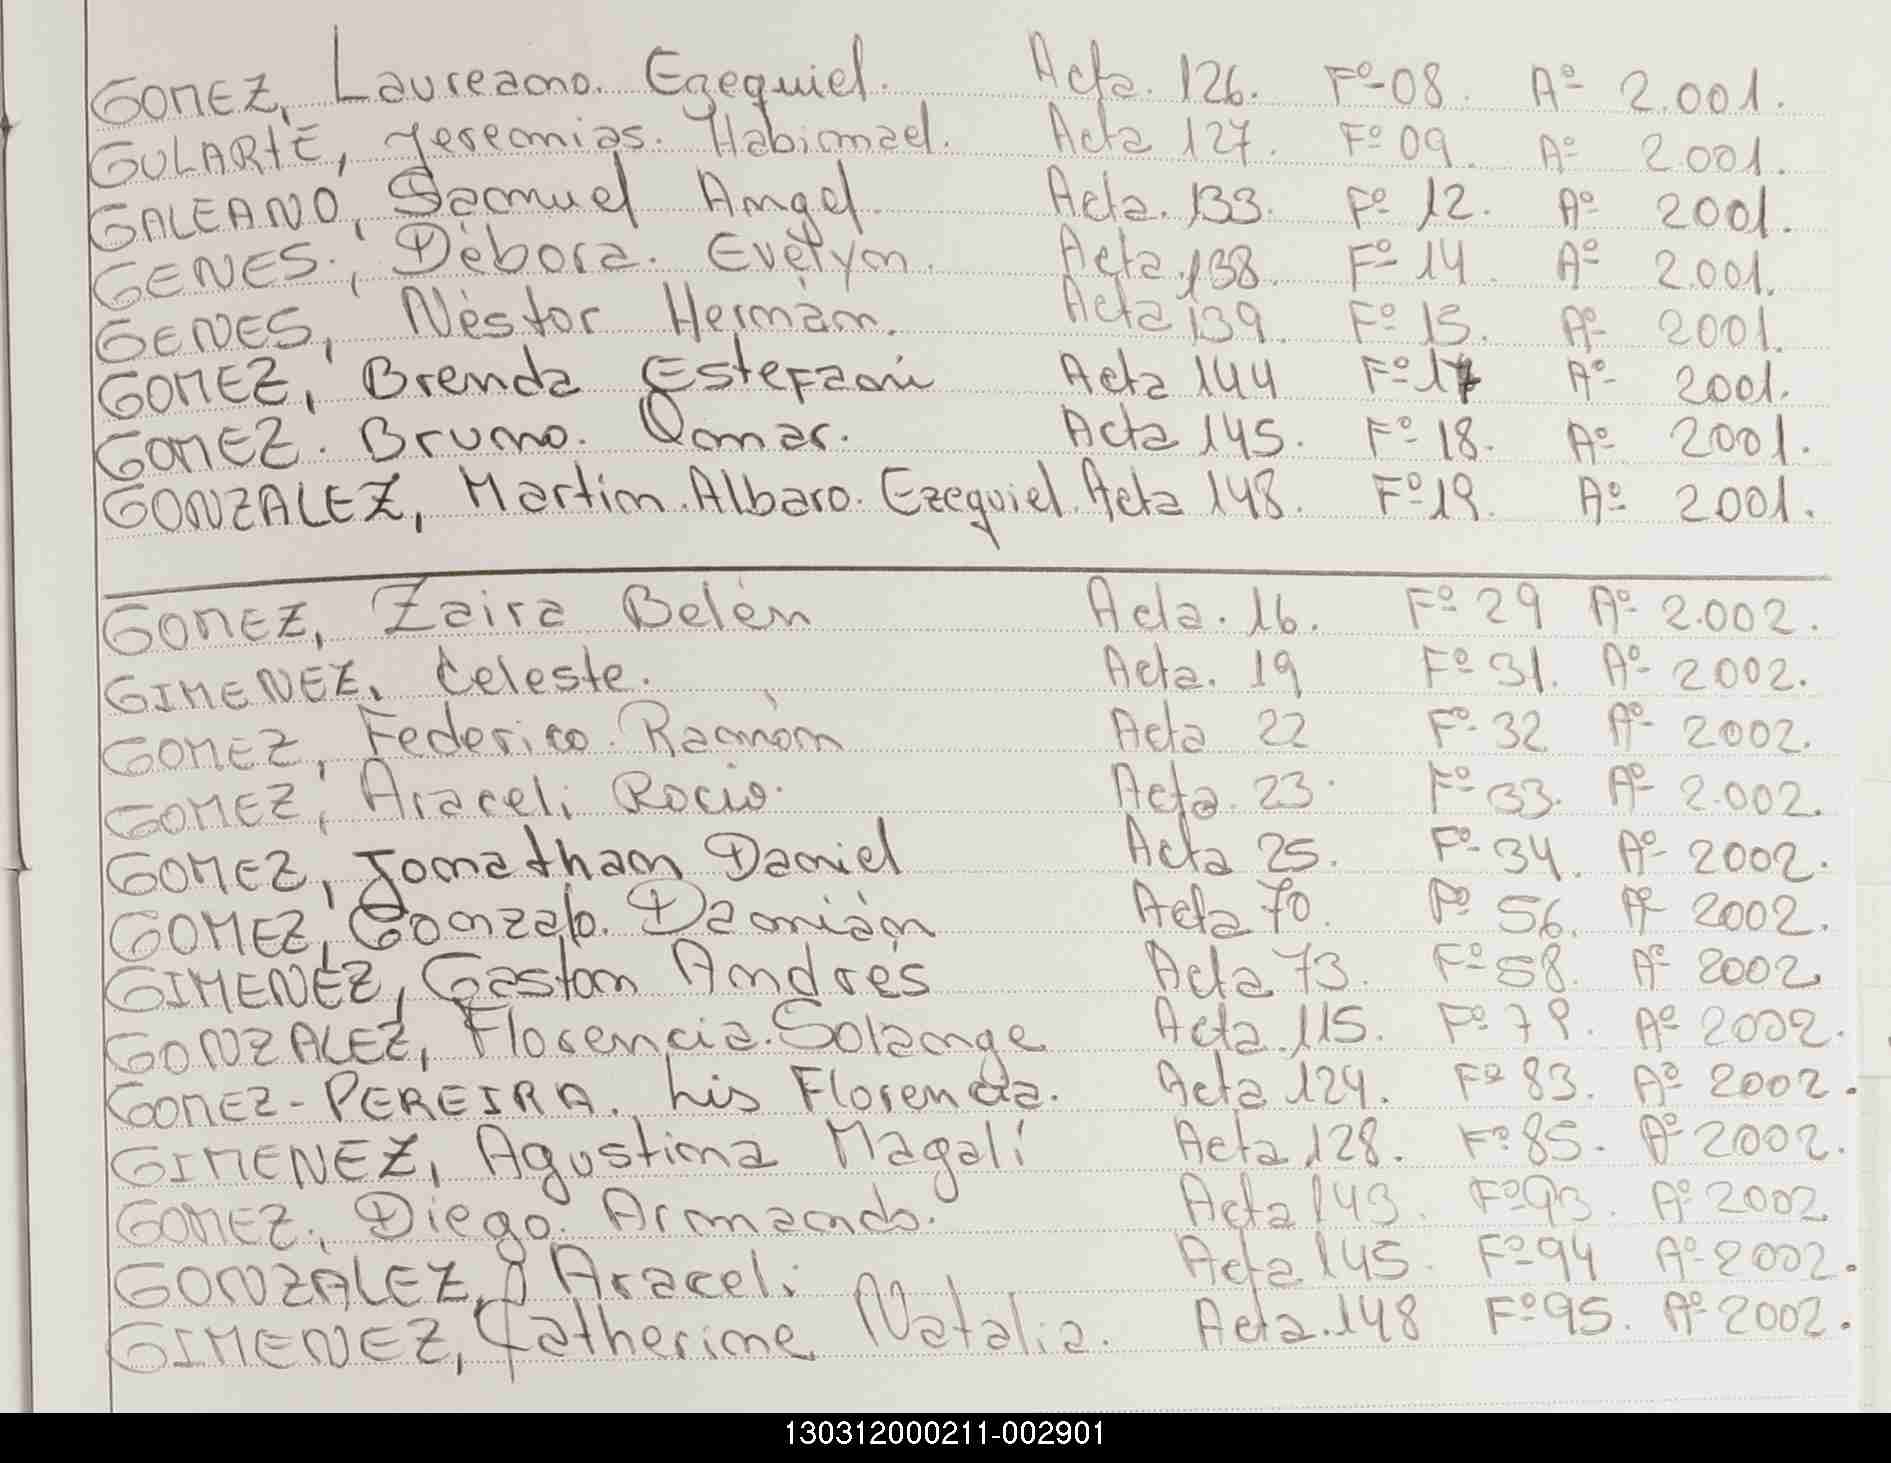 GOMEZ, Laureano. Ezequiel. Acta. 126. Fº 08. Aº 2.001.
GULARTE, Jeremias. Habimael. Acta 127. Fº 09. Aº 2.001.
GALEANO, Samuel Angel. Acta. 133. Fº 12. Aº 2001.
GENES., Débora. Evelyn. Acta. 138. Fº 14. Aº 2.001.
GENES, Néstor Hernán. Acta 139. Fº 15. Aº 2001.
GOMEZ, Brenda Estefani Acta 144 Fº 17 Aº 2001.
GOMEZ. Bruno. Omar. Acta 145. Fº 18. Aº 2001.
GONZALEZ, Martin. Albaro. Ezequiel. Acta 148. Fº 19. Aº 2001.
GOMEZ, Zaira Belén Acta. 16. Fº 29 Aº 2.002.
GIMENEZ, Celeste. Acta. 19 Fº 31. Aº 2002.
GOMEZ, Federico. Ramón Acta 22 Fº 32 Aº 2002.
GOMEZ, Araceli Rocio. Acta. 23. Fº 33. Aº 2.002.
GOMEZ, Jonathan Daniel Acta 25. Fº 34. Aº 2002.
GOMEZ, Gonzalo. Damián Acta 70. Fº 56. Aº 2002.
GIMENEZ, Gaston Andrés Acta 73. Fº 58. Aº 2002
GONZALEZ, Florencia. Solange Acta. 115. Fº 79. Aº 2002.
GOMEZ-PEREIRA. Lis Florencia. Acta 124. Fº 83. Aº 2002.
GIMENEZ, Agustina Magalí Acta 128. Fº 85. Aº 2002.
GOMEZ, Diego. Armando. Acta 143. Fº 93. Aº 2002
GONZALEZ, Araceli Acta 145. Fº 94 Aº 2002.
GIMENEZ, Catherine Natalia. Acta. 148 Fº 95. Aº 2002.
130312000211-002901